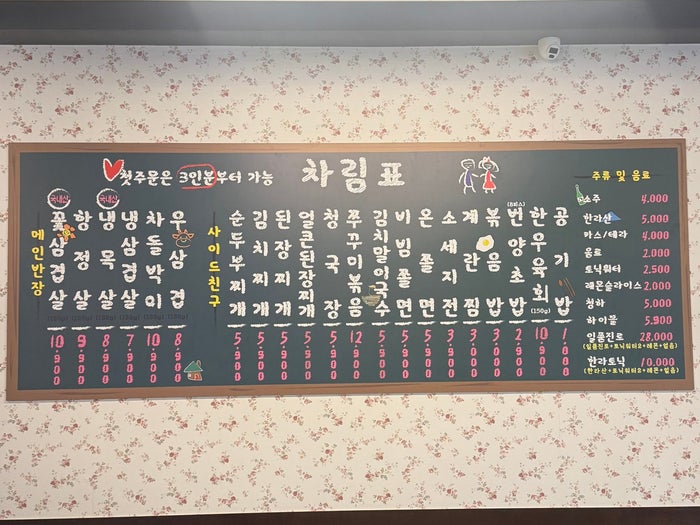 첫주문은 3인분부터 가능
차림표
메인반장
국내산
꽃삼겹살 10,000
국내산
항정살 9,000
냉목살 8,000
냉삼겹살 7,000
차돌박이 10,000
우삼겹 8,000
사이드친구
순두부찌개 5,000
김치찌개 5,000
된장찌개 5,000
얼큰된장찌개 5,000
청국장 5,000
쭈꾸미볶음 12,000
김치말이국수 5,000
비빔쫄면 5,000
온쫄면 5,000
소세지전 3,000
계란찜 3,000
볶음밥 3,000
번양초밥 2,000
한우육회 (150g) 10,000
공기밥 1,000
주류 및 음료
소주 4,000
한라산 5,000
카스/테라 4,000
음료 2,000
토닉워터 2,500
레몬슬라이스 2,000
청하 5,000
하이볼 5,900
일품진로 28,000
(일품진로+토닉워터2+레몬+얼음)
한라토닉 10,000
(한라산+토닉워터2+레몬+얼음)